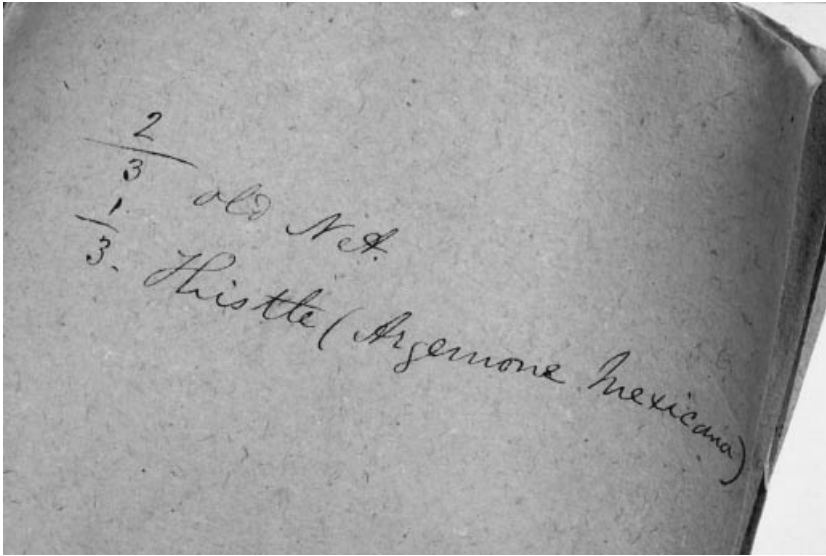 2/3 old Net.
1/3. Thistle (Argemone Mexicana)